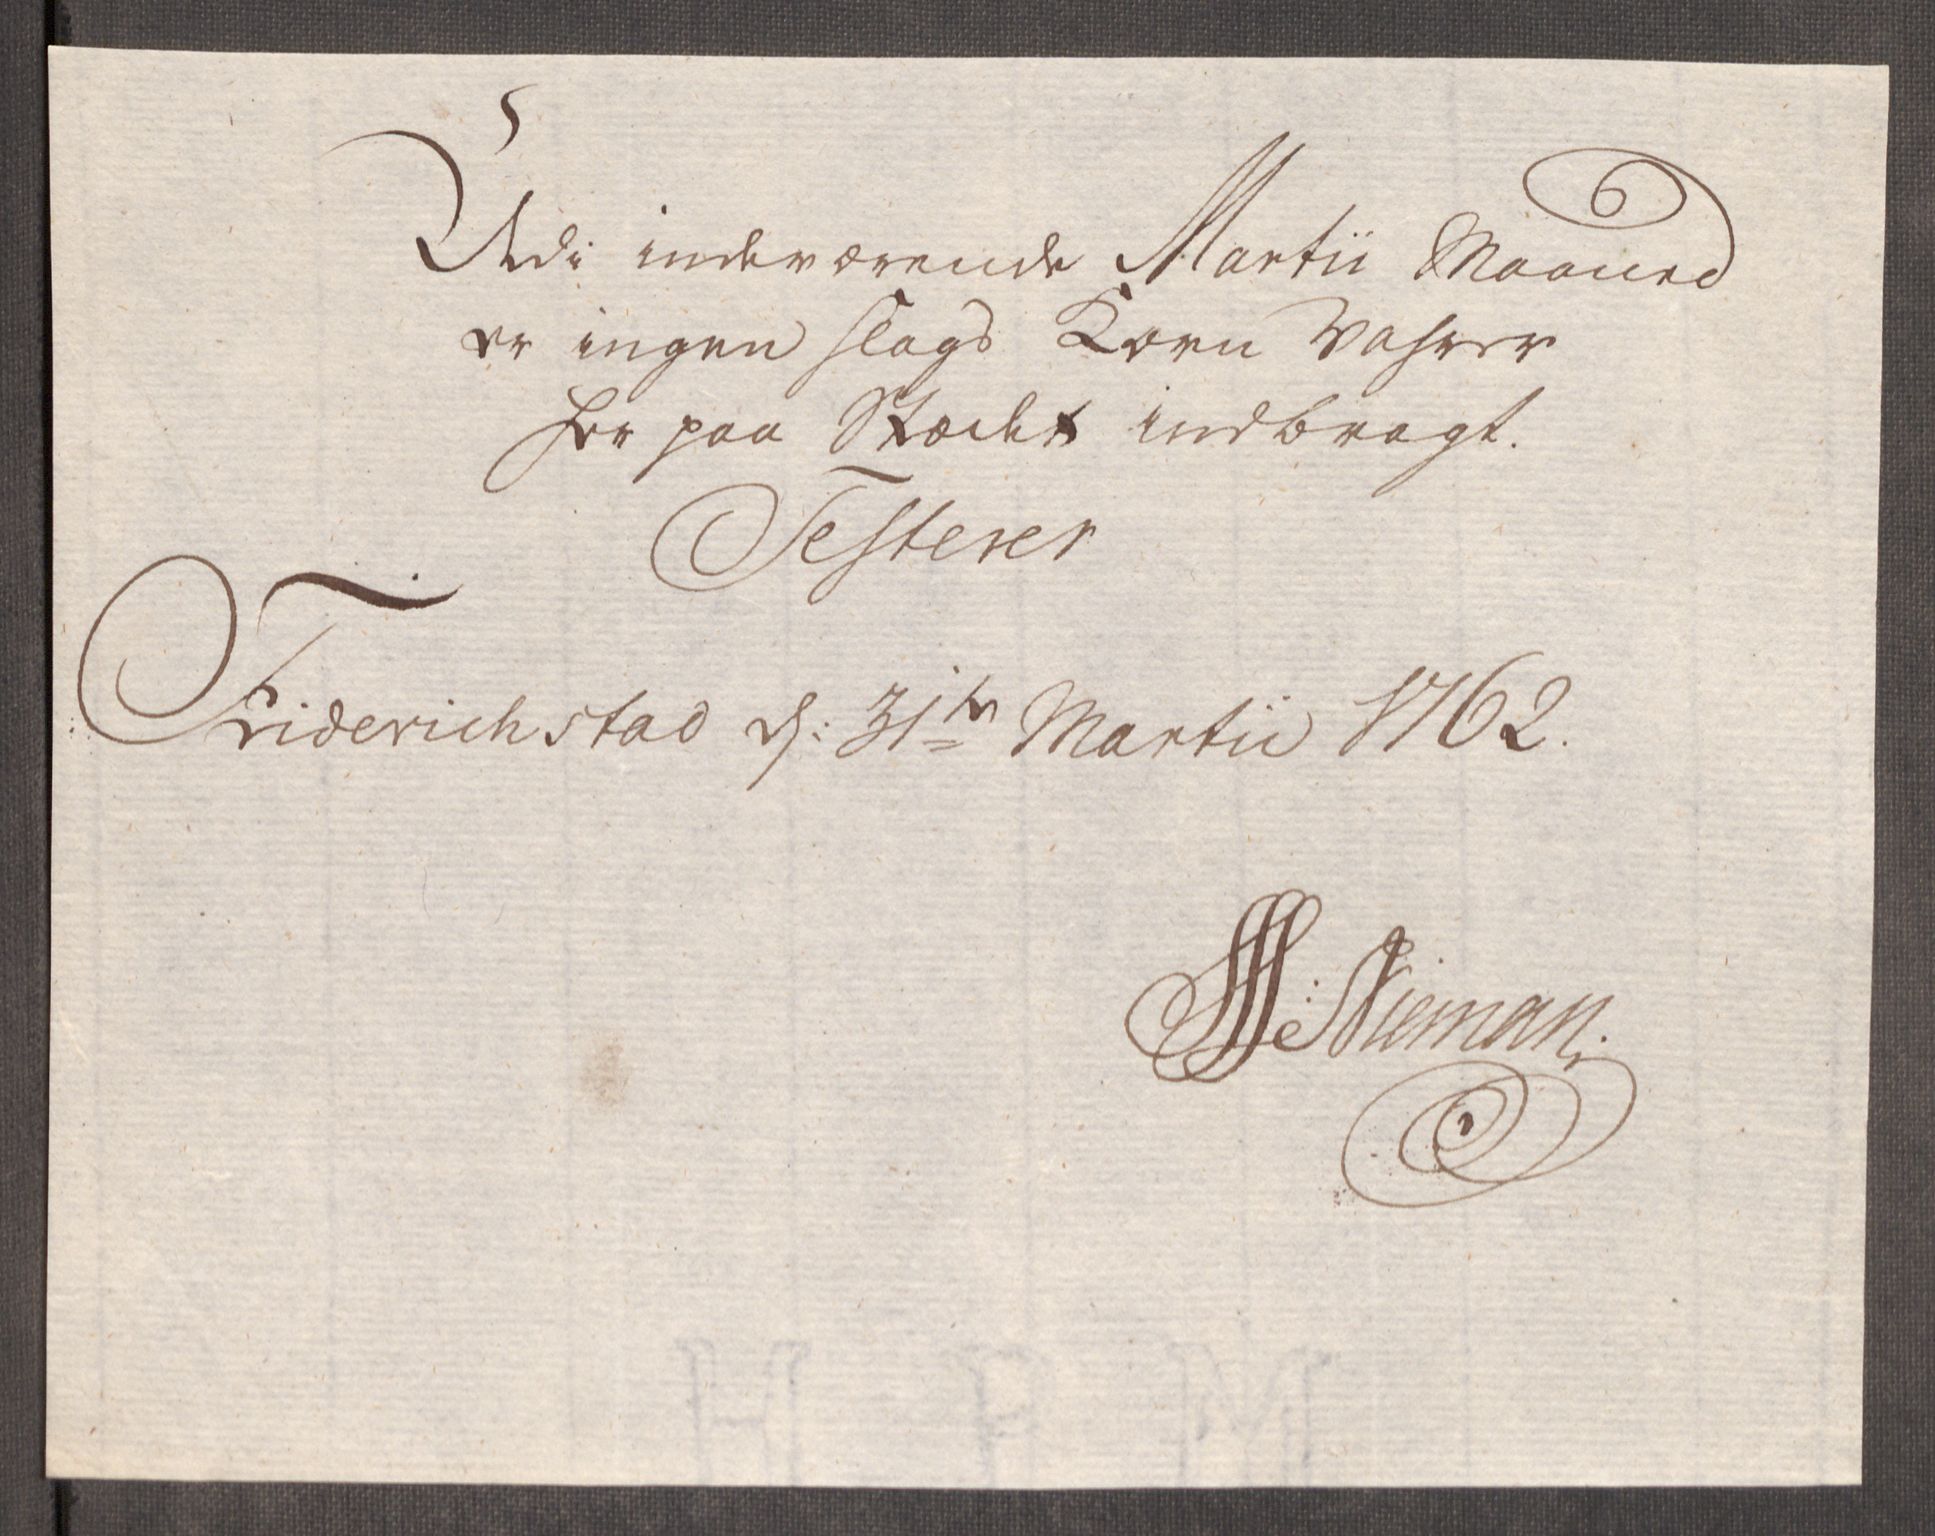 Udi indeværende Martii Maaned
er ingen slags Korn Vahrer
her paa Stædet indbragt.
Testerer
Friderichstad d: 31te Martii 1762.
Nieman.